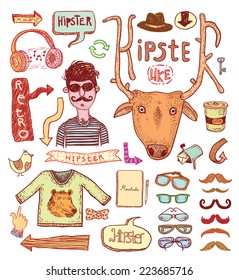 HIPSTER
HiPSTER
LIKE
RETRO
HIPSTER
Hipster
shutterstock.com · 223685716